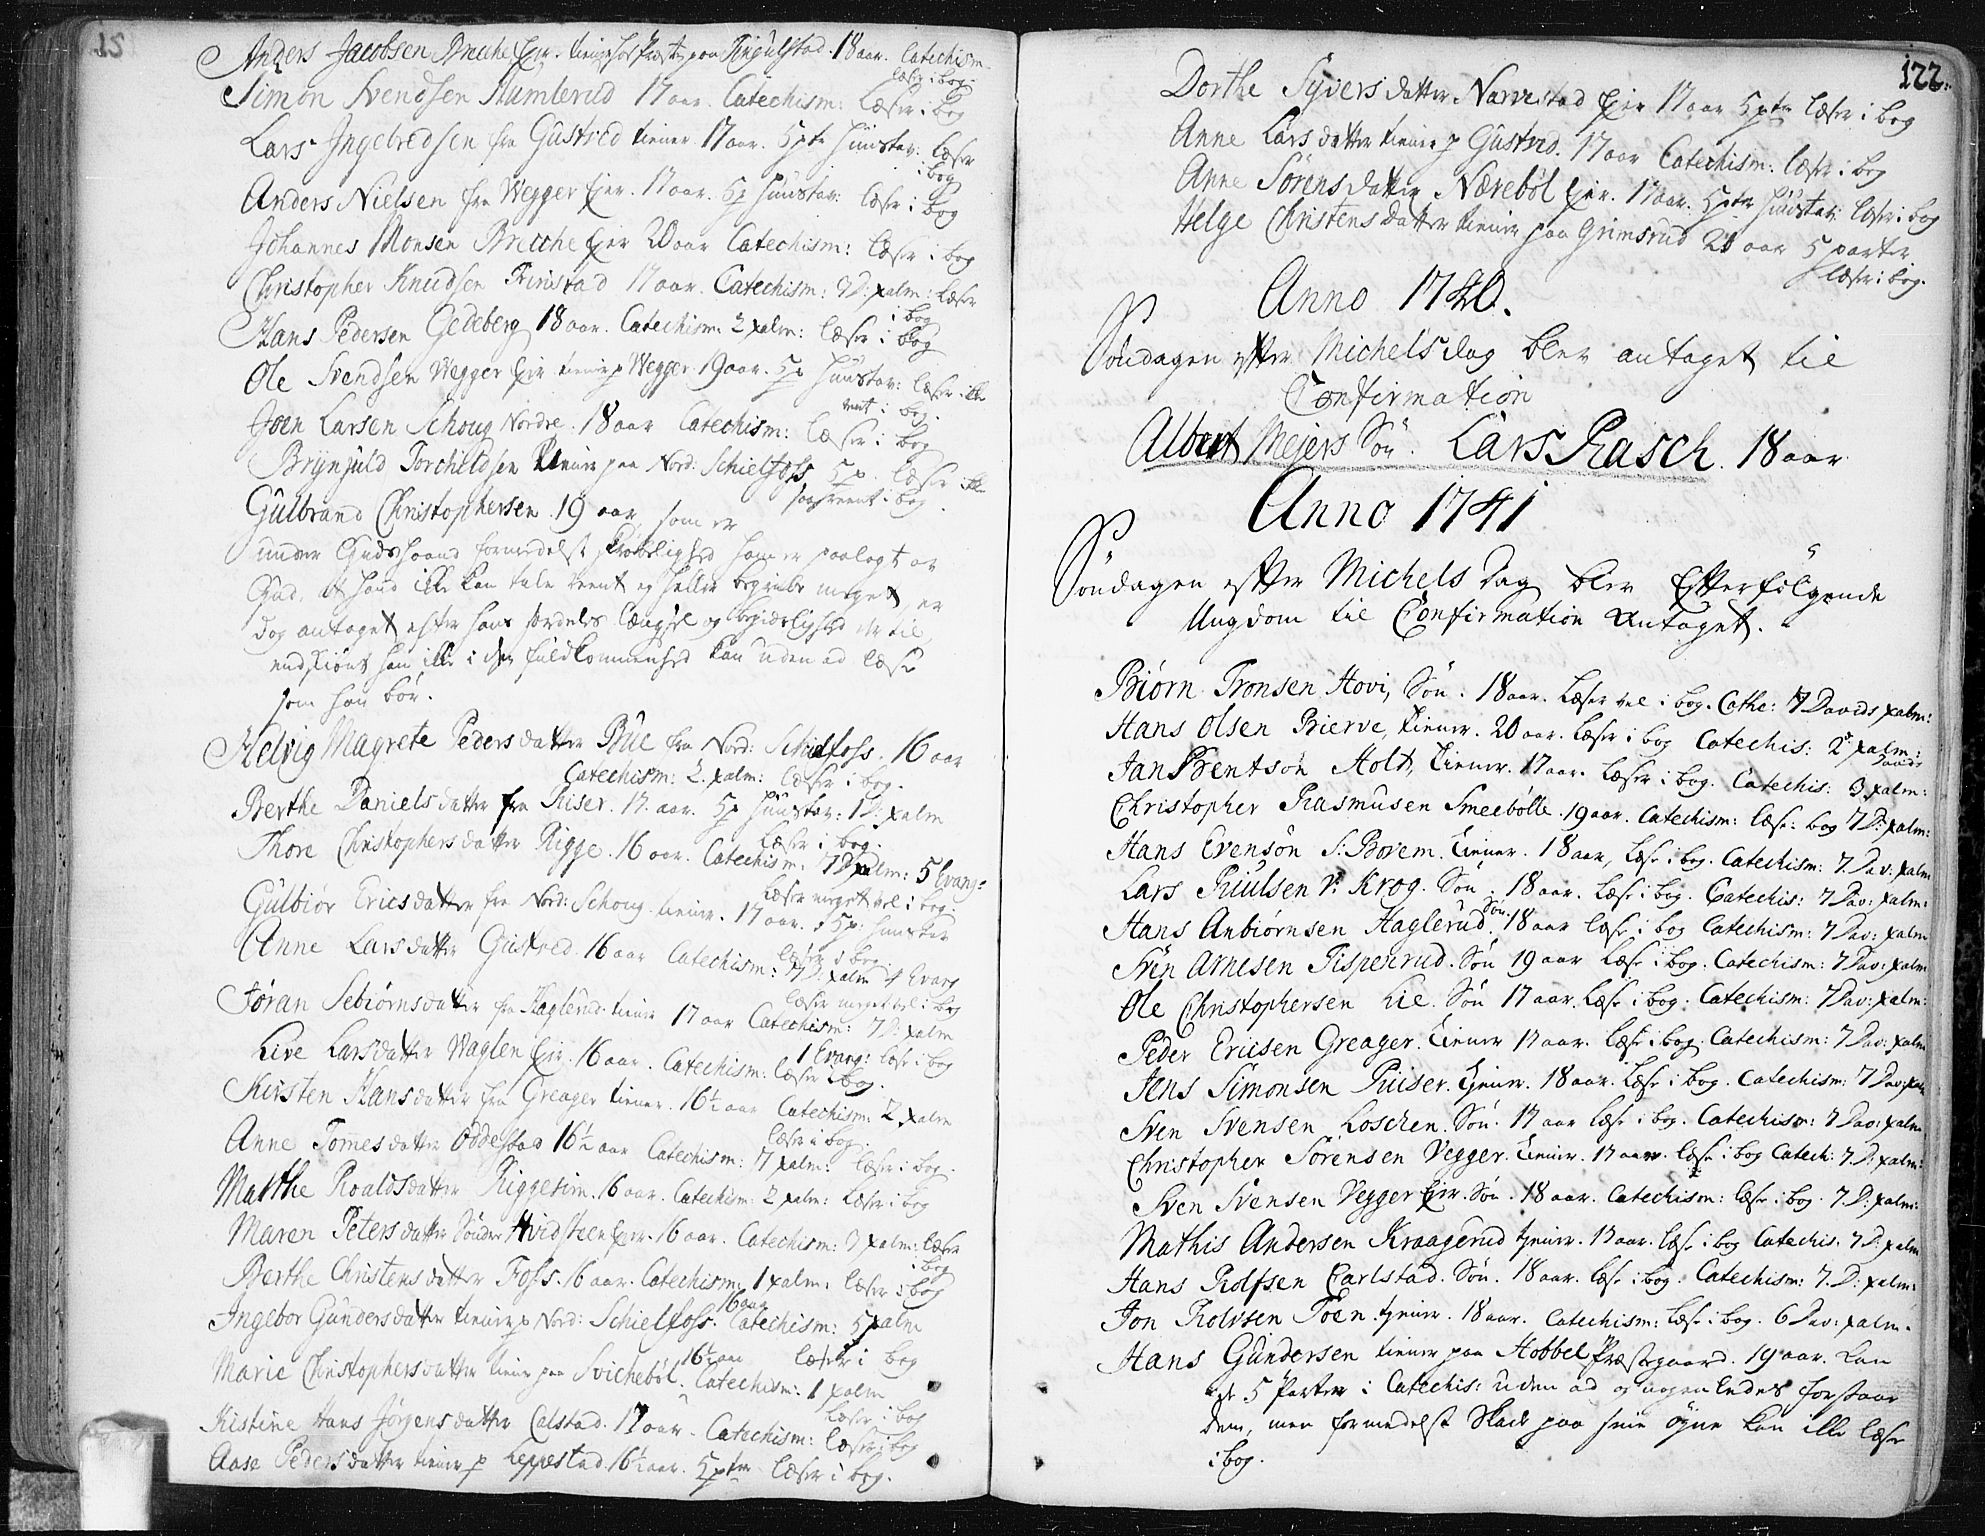 Anders Jacobsen Brecke Eier. tiener hos Præsten paa Ringulstad. 18 aar. Catechism.
læser i bog.
Simon Svendsen Humlerud 17 aar. Catechism: læser i bog
Lars Ingebredsen fra Gustred tiener 17 aar. 5 pte Huustav: læser
i bog
Anders Nielsen fra Wegger Eier. 17 aar. 5 p Huustav: læser i bog
Johannes Monsen Brecche Eier 20 aar Catechism: læser i bog
Christopher Knudsen Frinstad 17 aar. Catechism: 7 D: psalm: læser
i bog
Hans Pedersen Gedeberg 18 aar. Catechism: 2 psalm: læser i bog
Ole Svendsen Wegger Eier tiener p Wegger 19 aar. 5 p Huustav: læser ikke
reent i bog.
Joen Larsen Schoug Nordre. 18 aar Catechism: læser i bog
Brynjuld Torchildsen tiener paa Nord: Schielfoss. 5 p. læser ikke
saa reent i bog.
Gulbrand Christophersen. 19 aar som er
under Guds Haand formedelst skrøbelighed ham er paalagt av
Gud, at hand ikke kan tale reent ej heller begribe meget er
dog antaget efter hans særdeles længsel og begiærlighed der til
endskiønt han ikke i den fuldkommenhed kan uden ad læse
som han bør.
Helvig Magrete Peders datter Bue fra Nord: Schielfoss. 16 aar
Catechism: 2. psalm: læser i bog.
Berthe Daniels datter fra Riser. 17. aar. 5 p Huustav: 1 D: psalm
læser i bog.
Thore Christophers datter Rigge. 16 aar. Catechism. 7 D psalm: 5 Evang:
læser meget vel i bog.
Gulbiør Erics datter fra Nord: Schoug. tiener. 17 aar. 5 p: Huustav
læser i bog.
Anne Lars datter Gustred. 16 aar Catechism: 7 D. psalm 4 Evang
læser meget vel i bog
Jøran Sebiørns datter fra Haglerud. tiener 17 aar Catechism: 7 D. psalm
1 Evang: læser i bog
Live Lars datter Waglen Eier. 16 aar. Catechism: læser i bog.
Kirsten Hans datter fra Greager tiener. 16½ aar Catechism: 2 psalm
læser i bog.
Anne Tommes datter Oddestad 16½ aar Catechism: 7 psalm: læser i bog.
Marthe Roalds datter Riggesim. 16 aar. Catechism: 2 psalm: læser i bog
Maren Peters datter Sønder Hvidsteen Eier. 16 aar. Catechism: 7 psalm: læser
i bog.
Berthe Christens datter Foss. 16 aar. Catechism. 1 psalm: læser i bog
Ingebor Gunders datter tiener p Nord: Schielfoss. 16 aar Catechism: 5 psalm
læser i bog
Marie Christophers datter tiener paa Svichebøl. 16½ aar Catechism: 1 psalm
læser i bog
Kistine Hans Jørgens datter Calstad. 17 aar. Catechism: læser i bog
Aase Peders datter tiener p Leppestad. 16½ aar. 5 pter læser i bog.
122.
Dorthe Syvers datter Narvestad Eier 17 aar 5 pter læser i bog
Anne Lars datter tiener p Gustred. 17 aar Catechism: læser i bog
Anne Sørens datter Nærebøl Eier. 17 aar. 5 pter Huustav: læser i bog
Helge Christens datter tiener paa Grimsrud 21 aar 5 parter
læser i bog.
Anno 1740.
Søndagen efter Michels dag blev antaget til
Confirmation
Albert Meiers Søn. Lars Rasch. 18 aar
Anno 1741
Søndagen efter Michels Dag blev Efterfølgende
Ungdom til Confirmation Antaget.
Biørn Tronsen Hovi, Søn. 18 aar. Læser vel i bog. Cathe: 7 Davids psalm:
Hans Olsen Bierve, tiener. 20 aar. Læser i bog Catechis: 2 psalm:
Davids
Jan Bentsøn Holt, tiener. 17 aar. Læser i bog. Catechis: 3 psalm:
Christopher Rasmusen Smeebølle. 19 aar. Catechism: læse i bog 7 D: psalm:
Hans Evensøn S: Borem. tiener. 18 aar, læse i bog. Catechism: 7. Dav: psalm
Lars Riulsen V: Krog. Søn. 18 aar. Læse i bog. Catechis: 7 Dav: psalm:
Hans Anbiørnsen Haglerud. Søn. 18 aar læse i bog Catechism: 7 Dav: psalm
Sven Arnesen Tispenrud. Søn 19 aar læse i bog. Catechism: 7 Dav: psalm
Ole Christophersen Lie. Søn 17 aar. Læse i bog. Catechism: 7 Dav: psalm:
Peder Ericsen Greager. tiener 17 aar. læse i bog. Catechism: 7 Dav: psalm
Jens Simonsen Ruiser. tiener. 18 aar. Læse i bog. Catechism: 7 Dav: psalm
Sven Svensen Loschen. Søn. 17 aar læse i bog. Catechism: 7 Dav: psalm.
Christopher Sørensen Vegger. tiener. 17 aar. læse i bog Catech: 7. D: psalm:
Sven Svensen Vegger Eier. Søn. 18 aar. Catechism: læse i bog. 7. D: psalm:
Mathis Andersen Kraagerud tiener. 17 aar. læse i bog Catechis. 7 D: psalm
Hans Rolfsen Carlstad. Søn. 18 aar. læse i bog. Catechism: 7. D: psalm:
Jon Rolvsen Toen. tiener. 18 aar. Catechism: læse i bog. 6 Dav: psalm.
Hans Gundersen tiener paa Hobbel Præstegaard. 19 aar. kan
de 5 Parter i Catechis: uden ad og nogenledes forstaar
dem, men formedelst Skade paa sine øyne kan ikke læse
i bog.